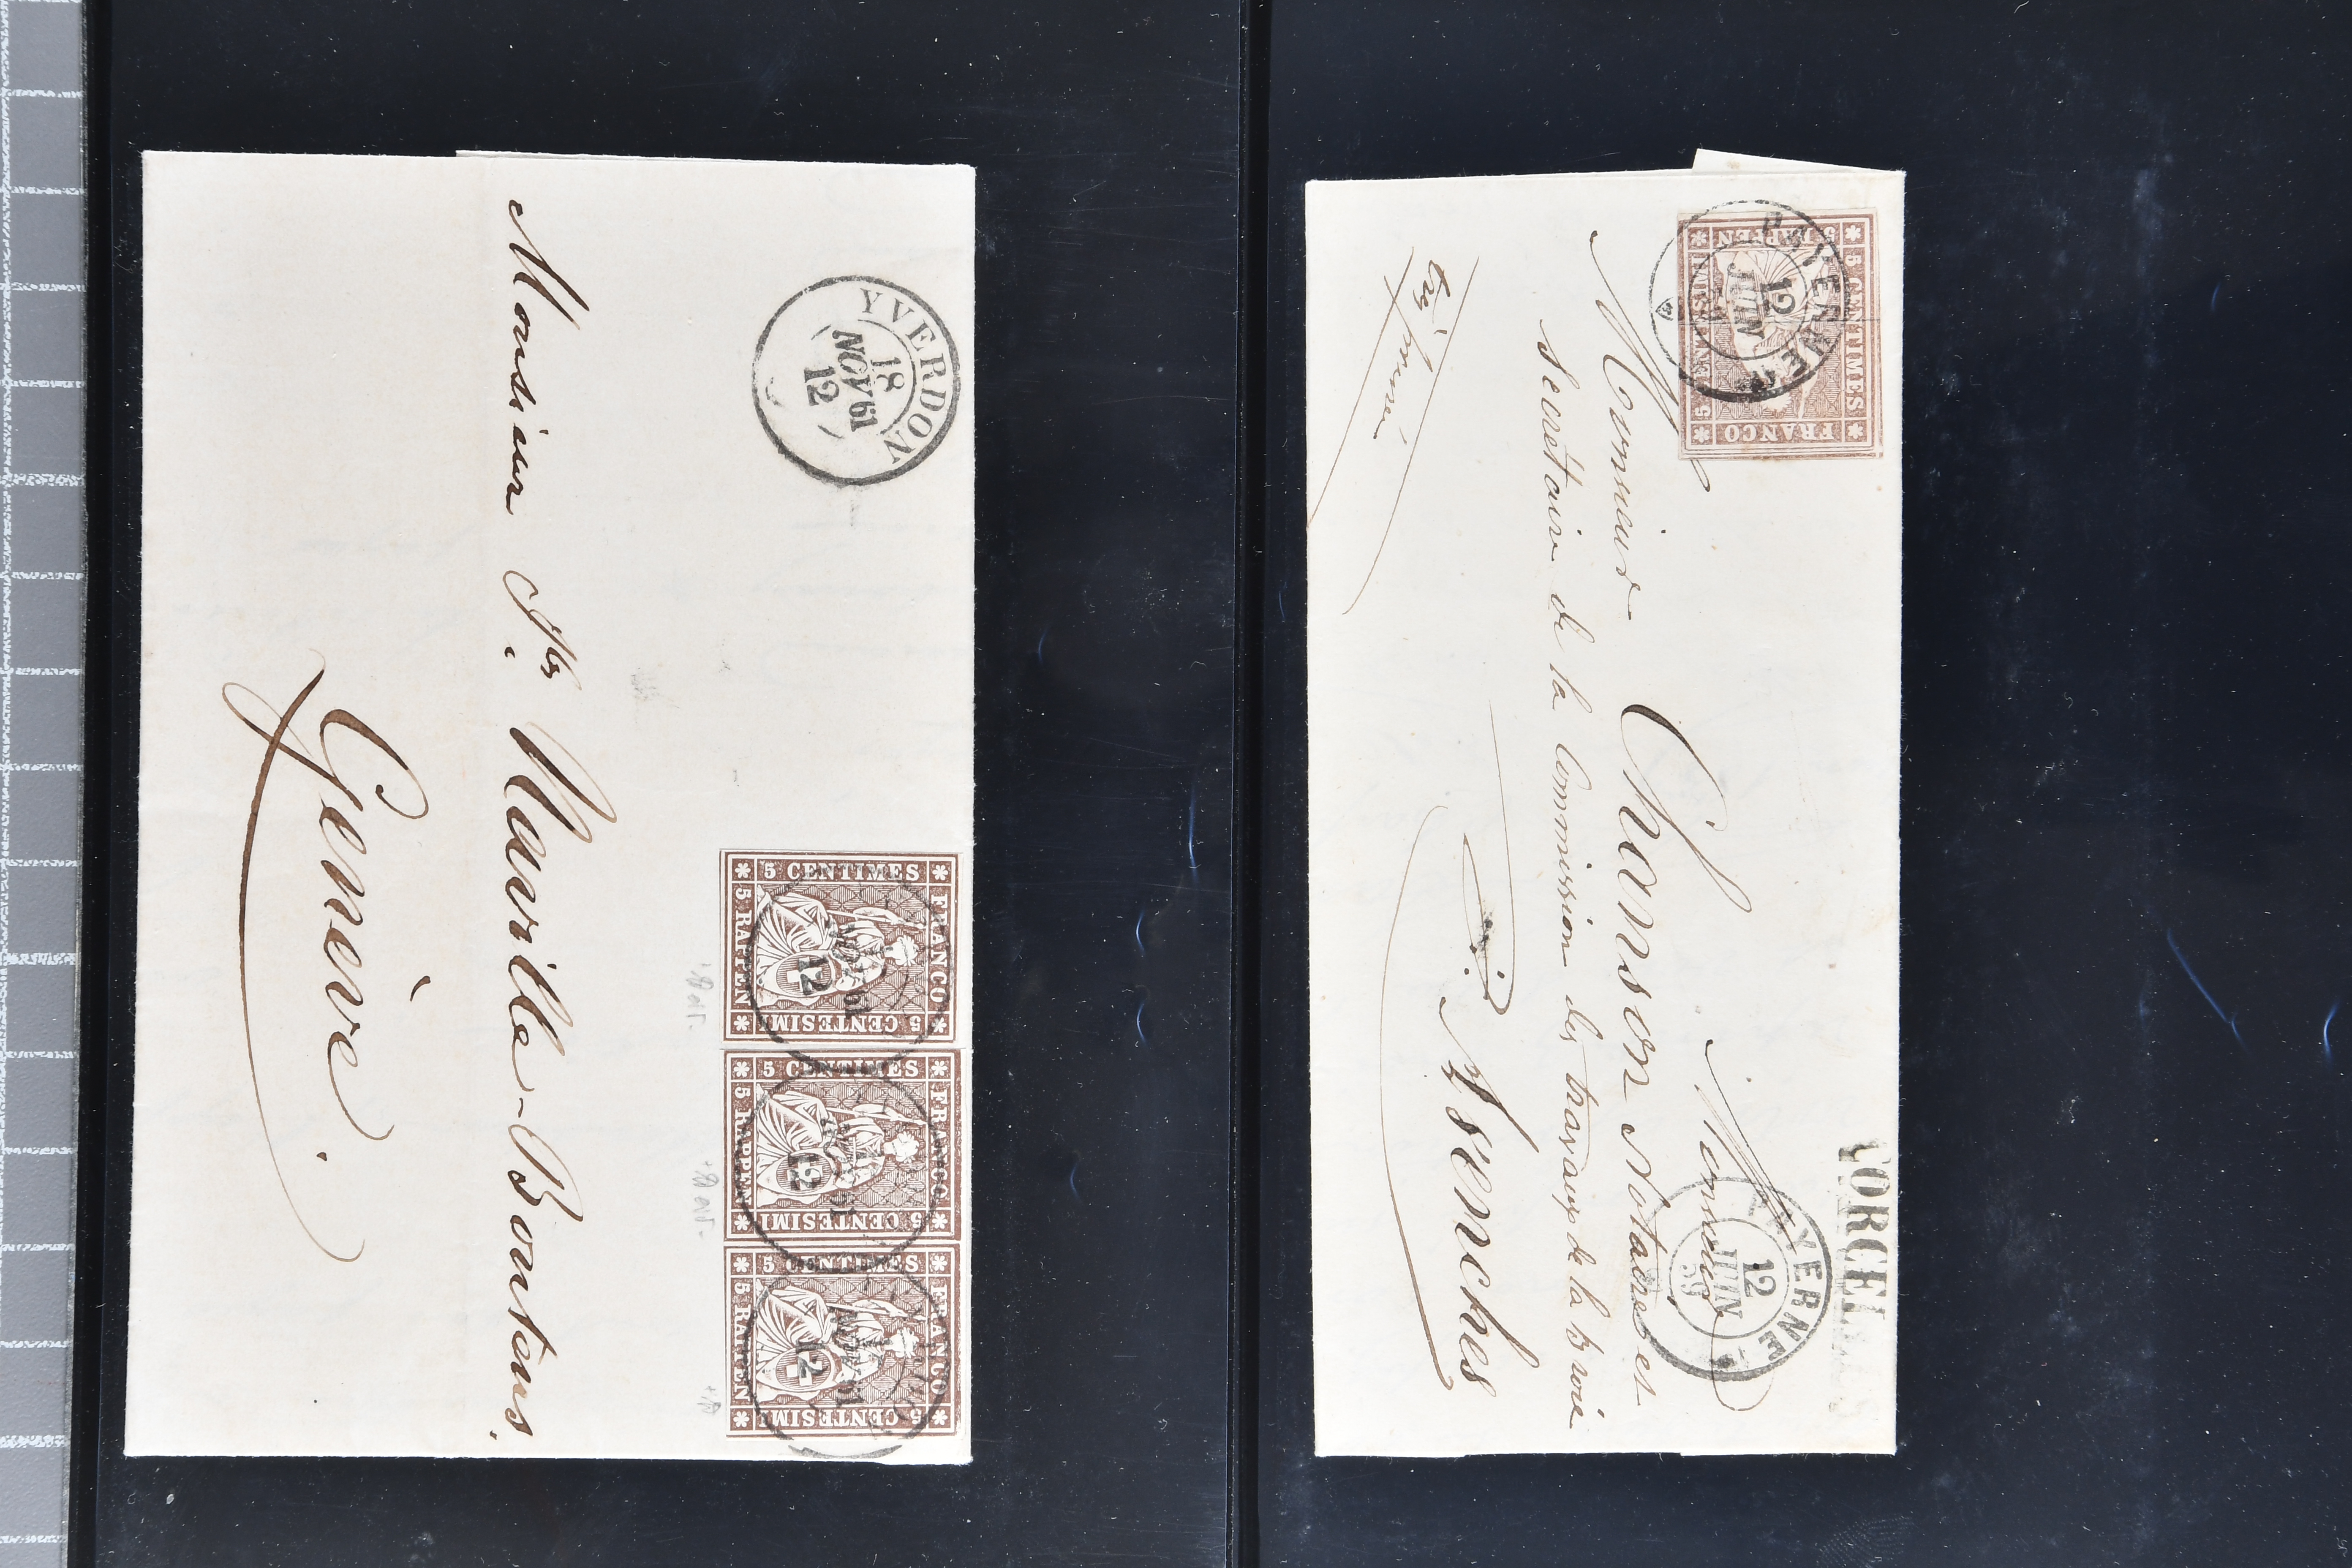 YVERDON
18
NOV 61
12
5 CENTIMES
FRANCO
5 RAPPEN
5 CENTESIMI
NOV 61
12
5 CENTIMES
FRANCO
5 RAPPEN
5 CENTESIMI
12
5 CENTIMES
FRANCO
5 RAPPEN
5 CENTESIMI
NOV 61
12
Monsieur
Naville-Bontems.
Genève.
PAYERNE
12
JUIN
5 CENTIMES
FRANCO
5 RAPPEN
PAYERNE
12
JUIN
59
Monsieur Monsieur
Chanson Notaire et
Secrétaire de la Commission des travaux de la Broie
à Avenches
très pressé